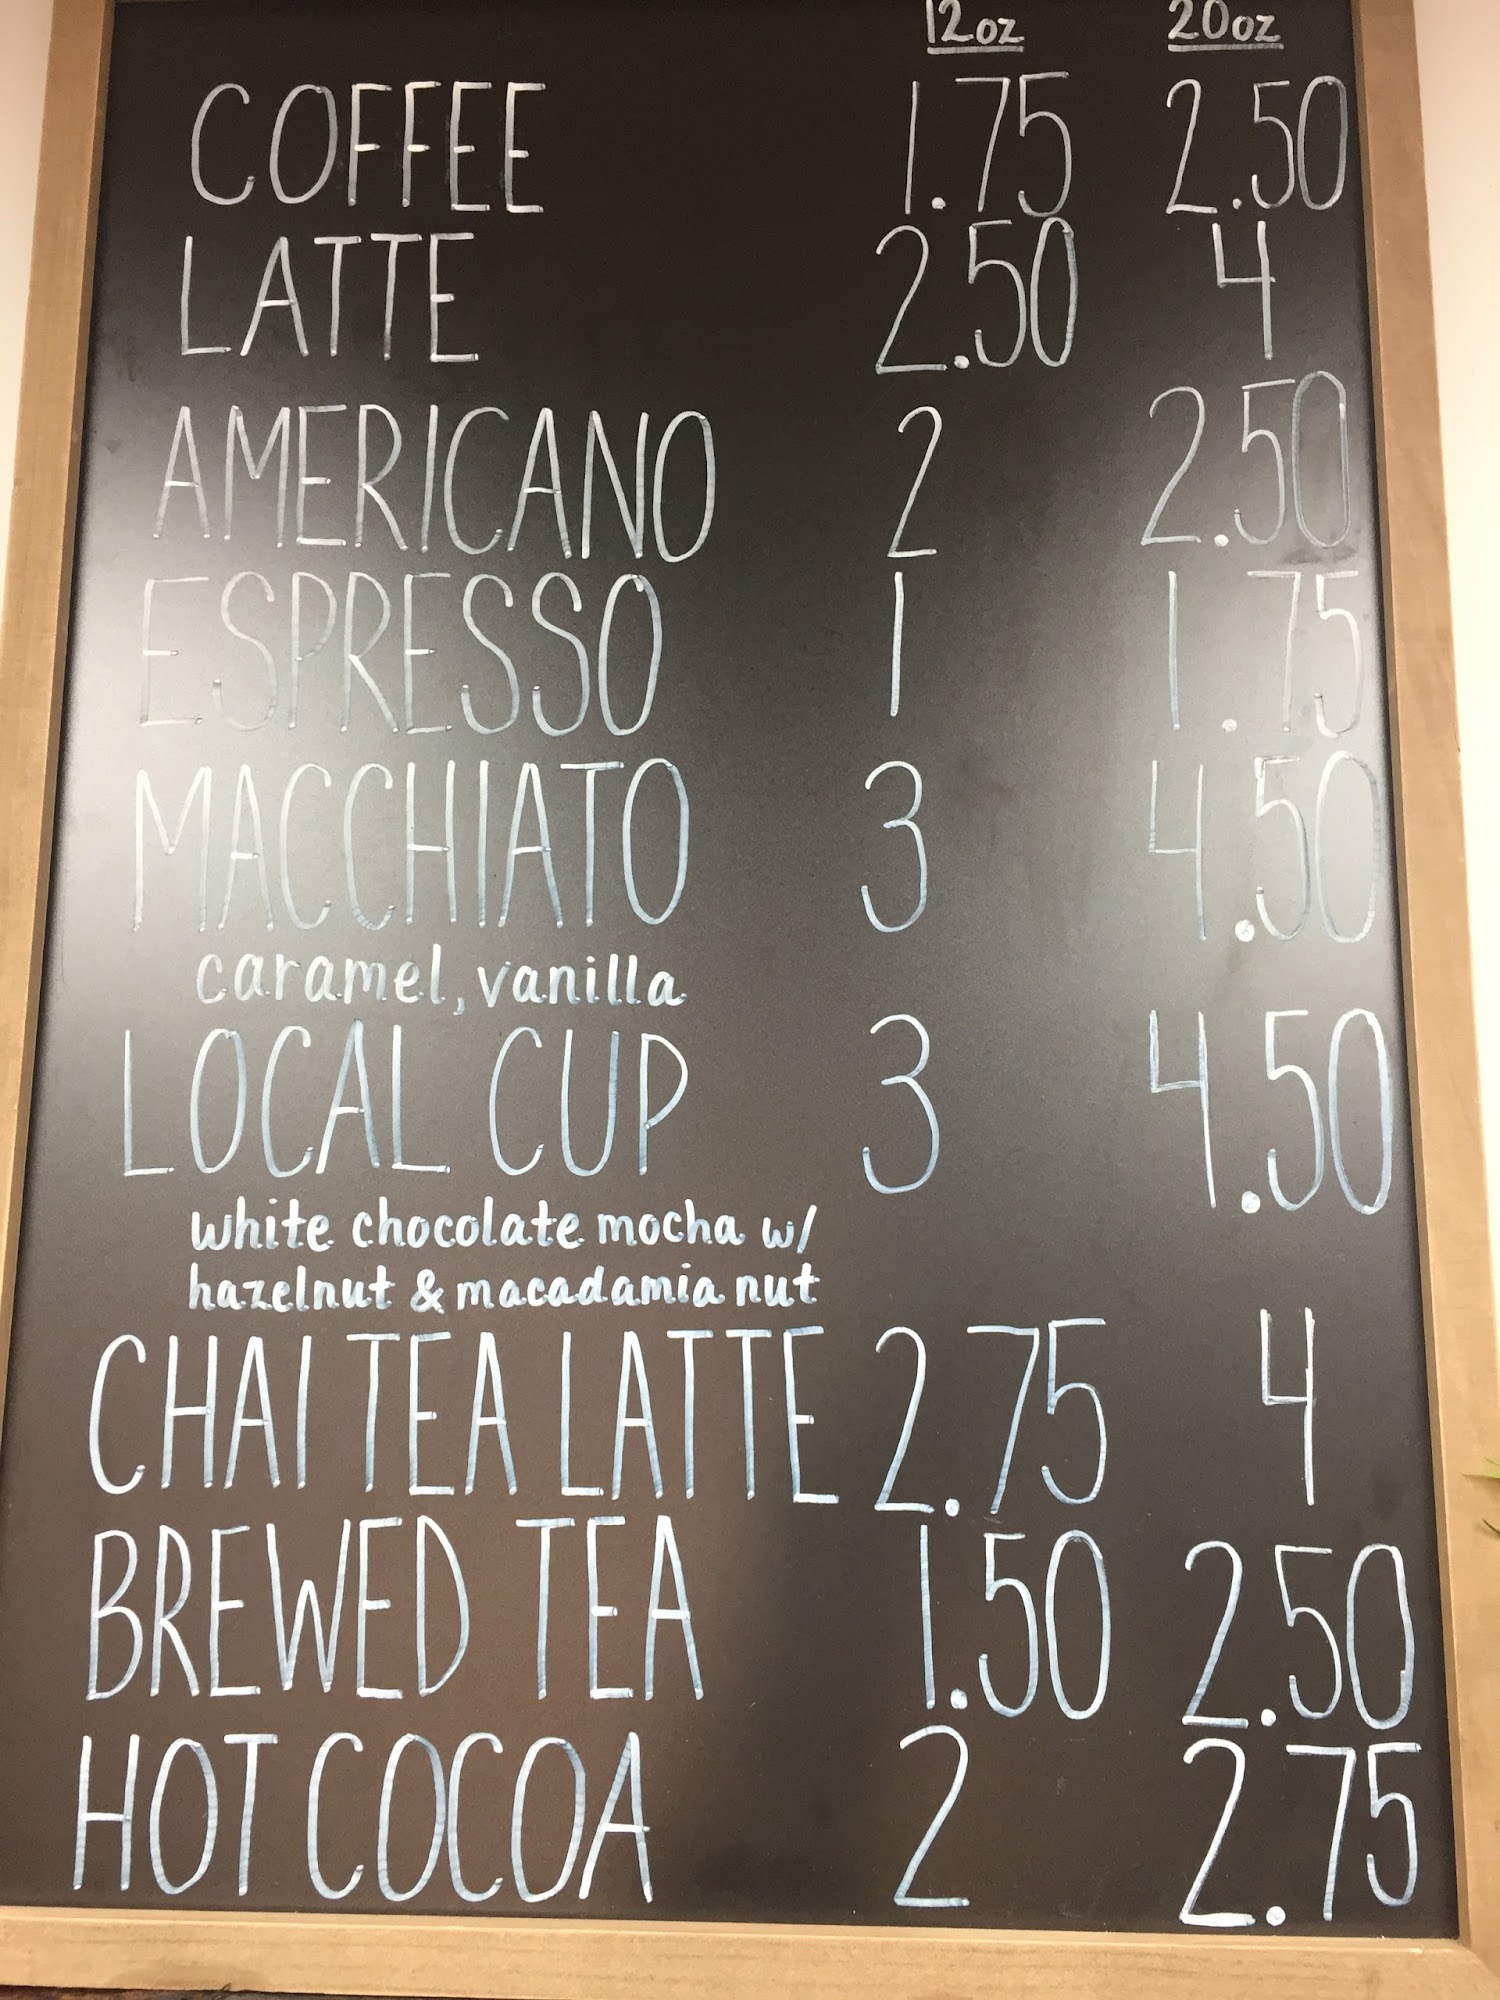 12oz 20oz
COFFEE 1.75 2.50
LATTE 2.50 4
AMERICANO 2 2.50
ESPRESSO 1 1.75
MACCHIATO 3 4.50
caramel, vanilla
LOCAL CUP 3 4.50
white chocolate mocha w/
hazelnut & macadamia nut
CHAI TEA LATTE 2.75 4
BREWED TEA 1.50 2.50
HOT COCOA 2 2.75